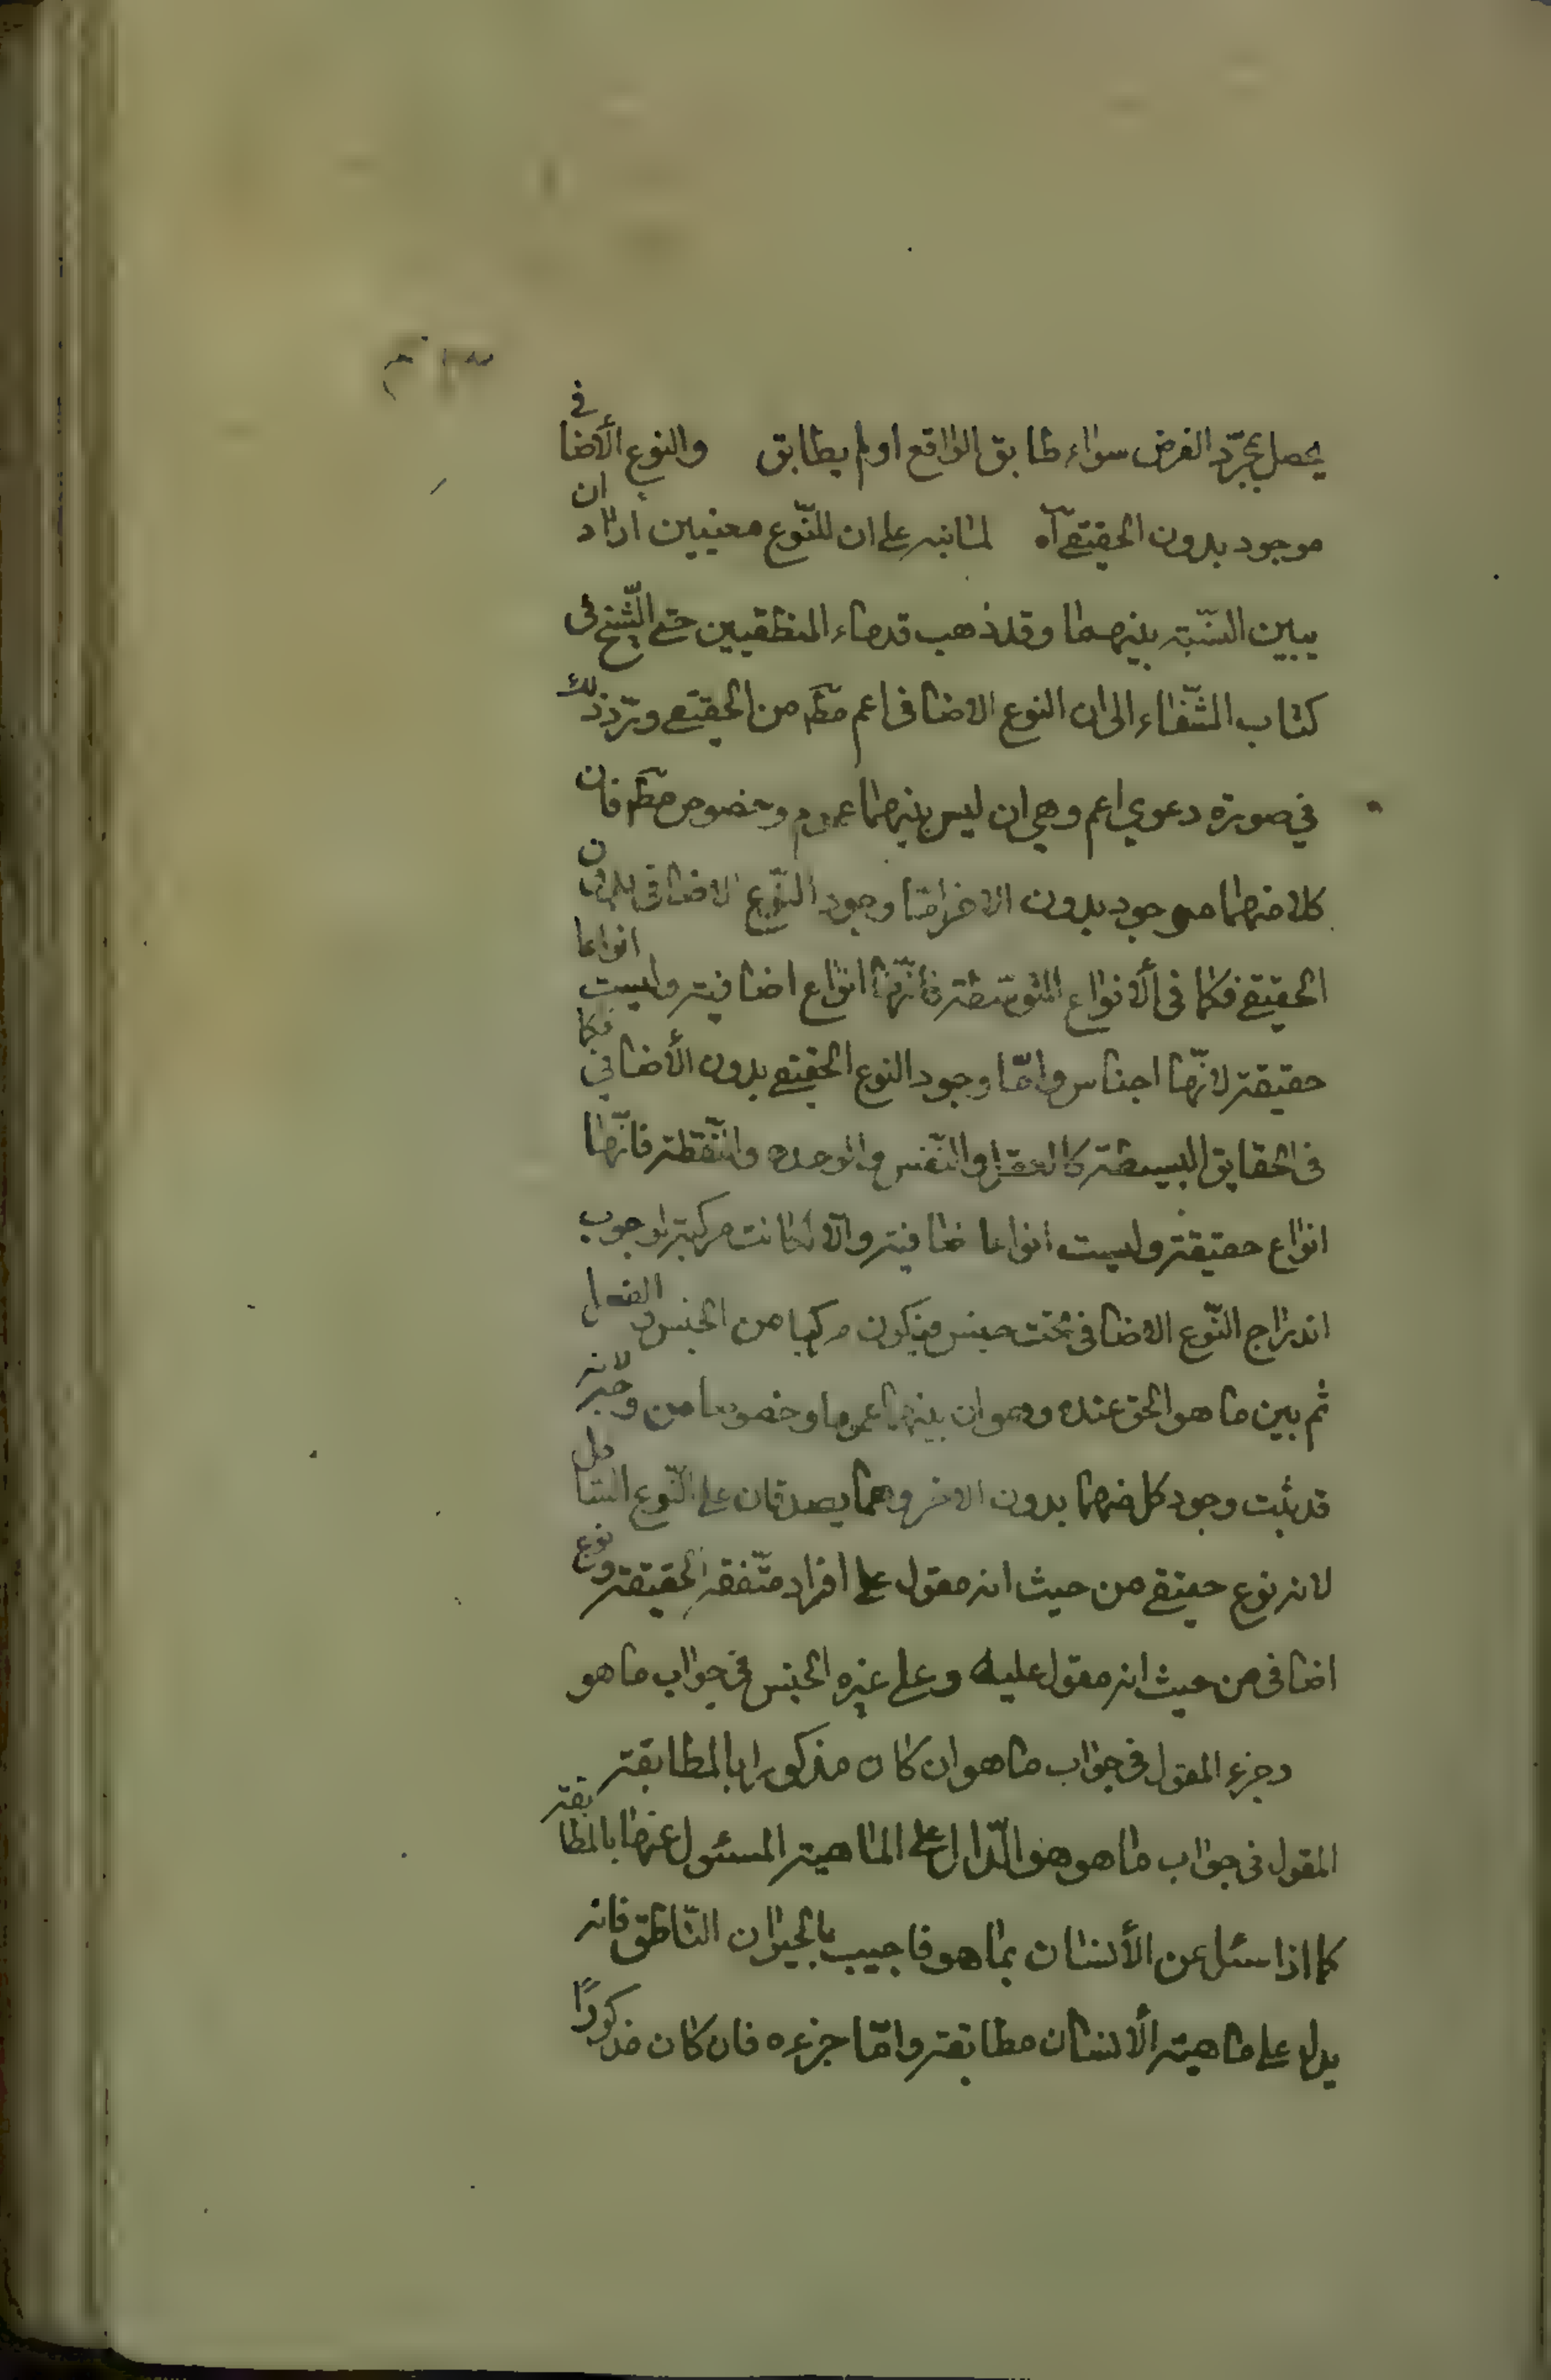 يحصل بمجرّد الفرض سواء طابق الواقع او لم يطابق والنوع الأضافي
موجود بدون الحقيقي آه لما نبه على ان للنّوع معنيين اراد ان
يبين النّسبة بينهما وقد ذهب قدماء المنطقيين حتى الشّيخ في
كتاب الشّفاء الى ان النوع الاضافى اعم مطـ من الحقيقي وردّ ذلك
في صورة دعوي اعم وهي ان ليس بينهما عموم وخصوص مطـ فان
كلا منهما موجود بدون الاخر امّا وجود النّوع الاضافى بدون
الحقيقي فكما فى الأنواع المتوسّطة فانّها انواع اضافية وليست انواعا
حقيقة لانّها اجناس وامّا وجود النوع الحقيقي بدون الأضافي فكما
فى الحقايق البسيطة كالعقل والنّفس والوحدة والنّقطة فانّها
انواع حقيقة وليست انواعا ضافية والّا لكانت مركبة لوجوب
اندراج النّوع الاضافى تحت جنس فيكون مركبا من الجنس والفصل
ثم بين ما هو الحق عنده وهو ان بينهما عموما وخصوصا من وجه لانه
قد ثبت وجود كل منهما بدون الاخر وهما يصدقان على النّوع السافل
لانه نوع حقيقي من حيث انه مقول على افراد متّفقة الحقيقة ونوع
اضافى من حيث انه مقول عليه وعلى غيره الجنس في جواب ما هو
وجزء المقول فى جواب ما هو ان كان مذكورا بالمطابقة
المقول فى جواب ما هو هو الدّال على الماهية المسئول عنها بالمطابقة
كما اذا سئل عن الأنسان بما هو فاجيب بالحيوان النّاطق فانه
يدل على ماهية الأنسان مطابقة وامّا جزءه فان كان مذكورًا